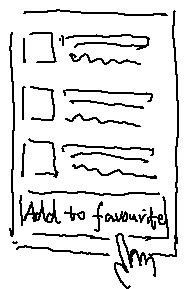 Add to favourite